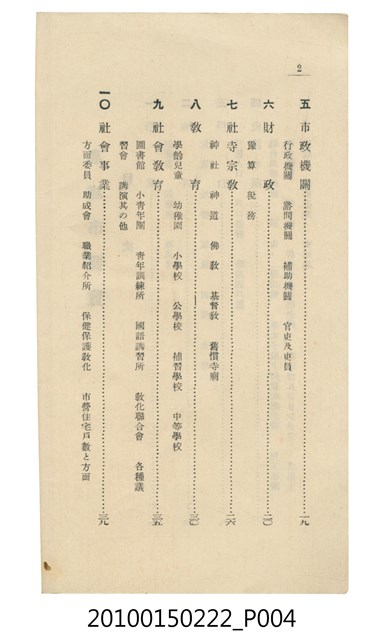 2
五 市政機關……一九
行政機關 諮問機關 補助機關 官吏及吏員
六 財政……二〇
豫算 稅務
七 社寺宗教……二六
神社 神道 佛教 基督教 舊慣寺廟
八 教育……三〇
學齡兒童 幼稚園 小學校 公學校 補習學校 中等學校
九 社會教育……三五
圖書館 小青年團 青年訓練所 國語講習所 教化聯合會 各種講
習會 講演其の他
一〇 社會事業……三九
方面委員 助成會 職業紹介所 保健保護教化 市營住宅戶數と方面
20100150222_P004